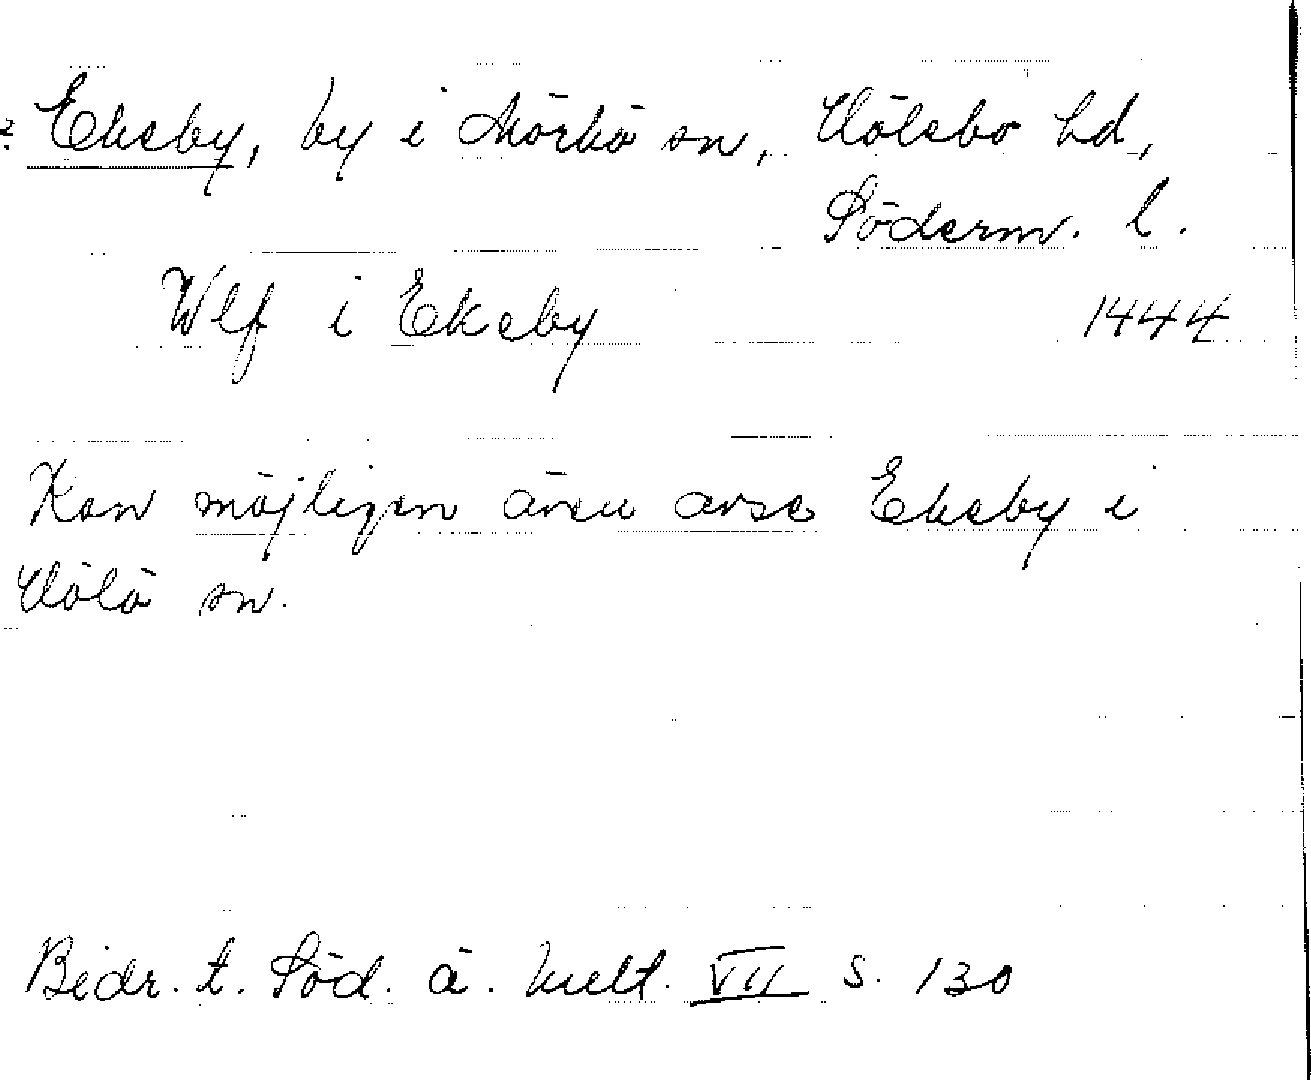 ? Ekeby, by i Mörkö sn, Hölebo hd,
Söderm. l.
Wlf i Ekeby 1444
Kan möjligen även avse Ekeby i
Hölö sn.
Bidr. t. Söd. ä. kult. VII s. 130